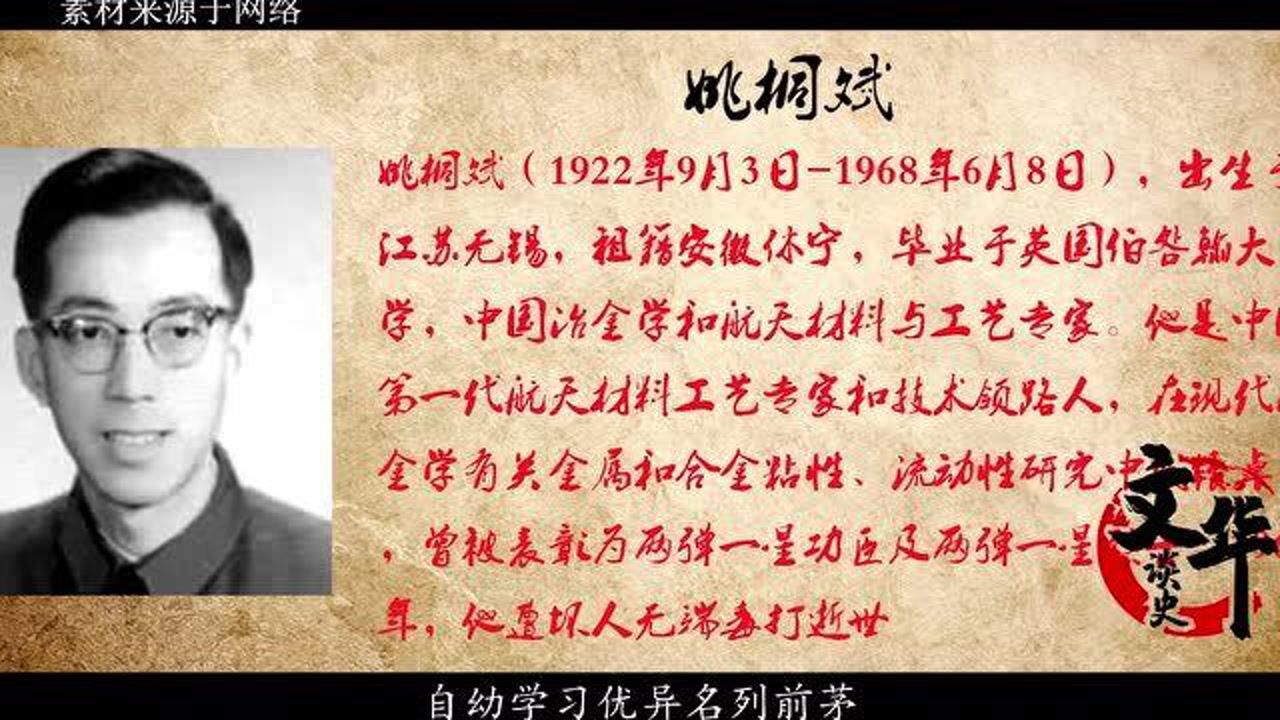 素材来源于网络
姚桐斌
姚桐斌（1922年9月3日-1968年6月8日），出生
江苏无锡，祖籍安徽休宁，毕业于英国伯明翰大
学，中国冶金学和航天材料与工艺专家。他是中
第一代航天材料工艺专家和技术领路人，在现代
金学有关金属和合金粘性、流动性研究中
，曾被表彰为两弹一星功臣及两弹一星
年，他遭坏人无端毒打逝世
文华
谈史
自幼学习优异名列前茅